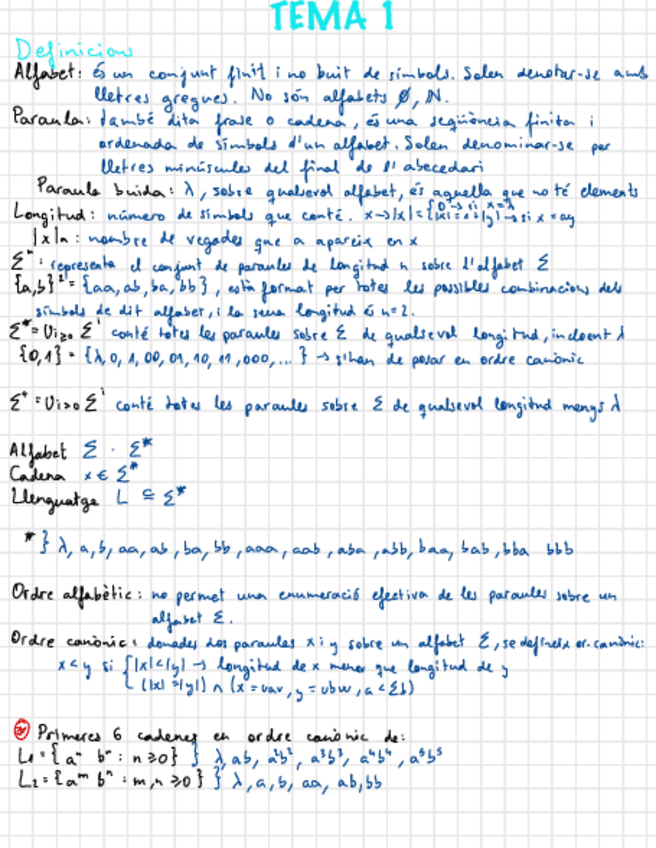 TEMA 1
Definicions
Alfabet: és un conjunt finit i no buit de símbols. Solen denotar-se amb
lletres gregues. No són alfabets ∅, ℕ.
Paraula: també dita frase o cadena, és una seqüència finita i
ordenada de símbols d'un alfabet. Solen denominar-se per
lletres minúscules del final de l'abecedari
Paraula buida: λ, sobre qualsevol alfabet, és aquella que no té elements
Longitud: número de símbols que conté. x→|x|={0→si x=λ
|x|=1+|y|→si x=ay
|x|a: nombre de vegades que a apareix en x
Σⁿ: representa el conjunt de paraules de longitud n sobre l'alfabet Σ
{a,b}² = {aa, ab, ba, bb}, està format per totes les possibles combinacions dels
símbols de dit alfabet, i la seua longitud és n=2.
Σ* = Ui≥0 Σⁱ conté totes les paraules sobre Σ de qualsevol longitud, incloent λ
{0,1} = {λ, 0, 1, 00, 01, 10, 11, 000, ...} → s'han de posar en ordre canònic
Σ⁺ = Ui>0 Σⁱ conté totes les paraules sobre Σ de qualsevol longitud menys λ
Alfabet Σ · Σ*
Cadena x ∈ Σ*
Llenguatge L ⊆ Σ*
* } λ, a, b, aa, ab, ba, bb, aaa, aab, aba, abb, baa, bab, bba bbb
Ordre alfabètic: no permet una enumeració efectiva de les paraules sobre un
alfabet Σ.
Ordre canònic: donades dos paraules x i y sobre un alfabet Σ, se defineix or. canònic:
x<y si {|x|<|y| → longitud de x menor que longitud de y
(|x|=|y|) ∧ (x = uav, y = ubw, a < Σ b)
Primeres 6 cadenes en ordre canònic de:
L₁ = {aⁿ bⁿ : n ≥ 0} } λ, ab, a²b², a³b³, a⁴b⁴, a⁵b⁵
L₂ = {aᵐ bⁿ : m,n ≥ 0} } λ, a, b, aa, ab, bb